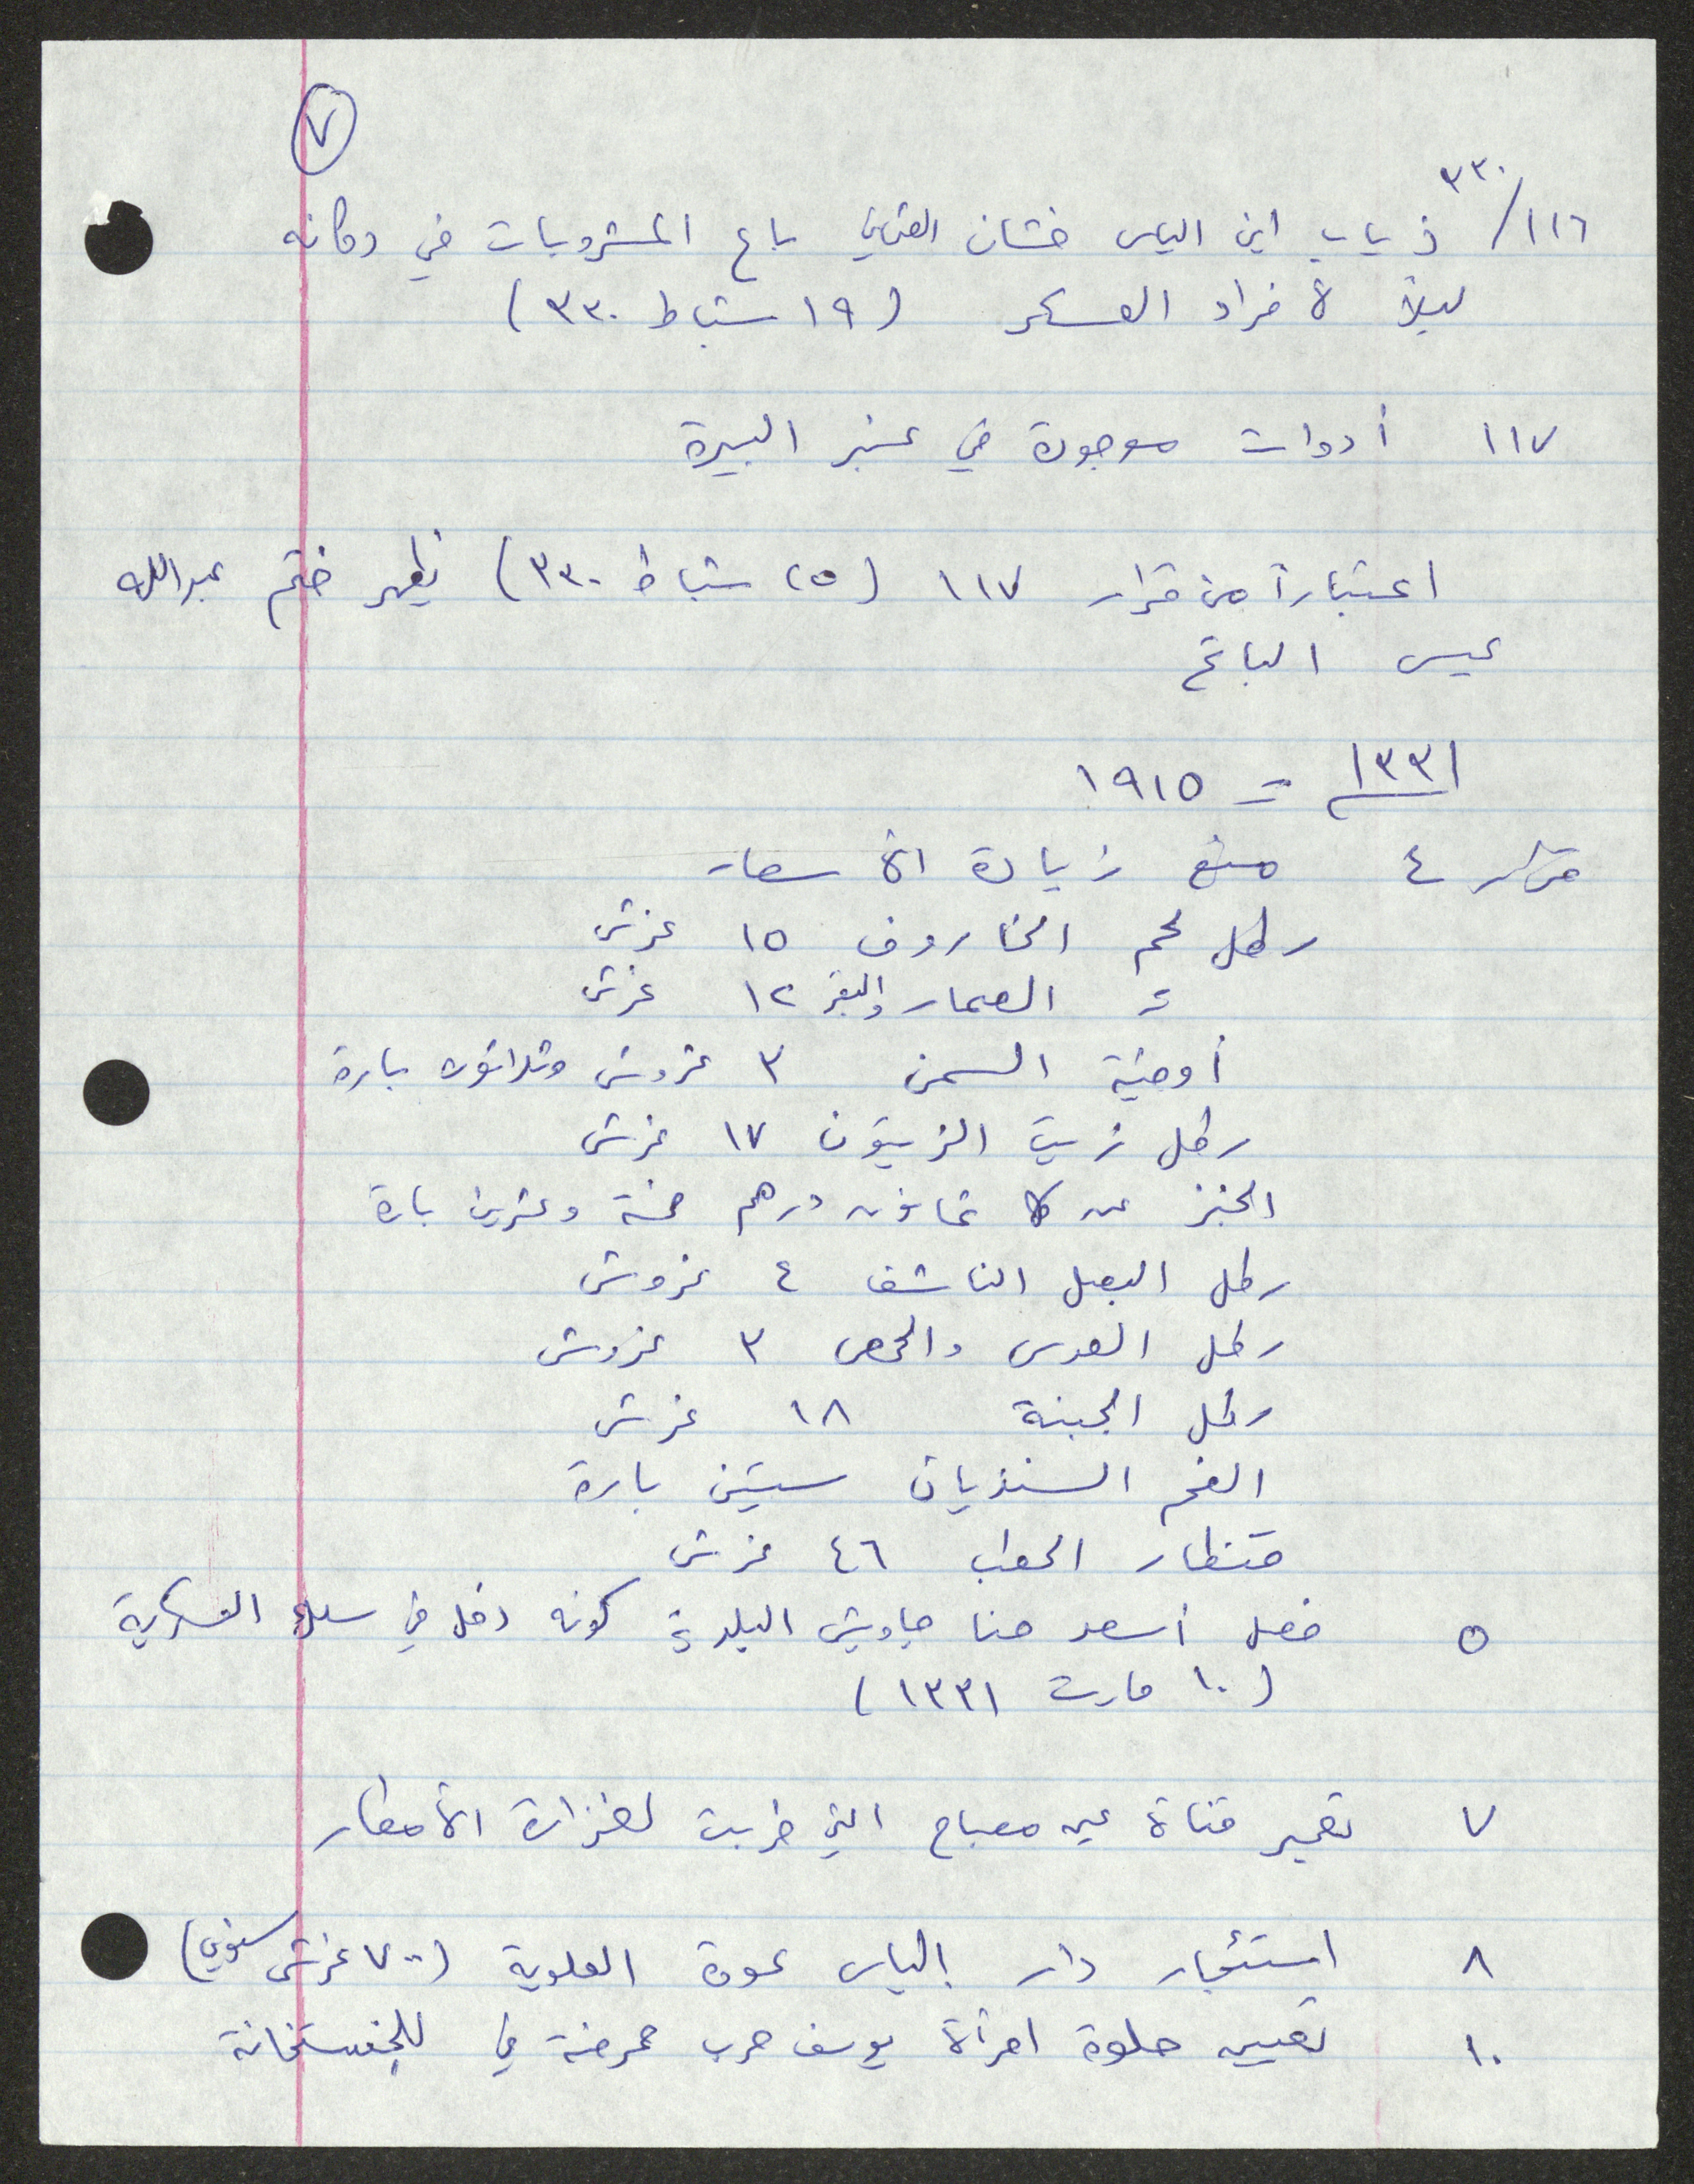 ٧
٣٣٠
١١٦/ ذياب ابن الياس خشان باع المشروبات في دكانه
ليلاً لأفراد العسكر (١٩ شباط ٣٣٠)
١١٧ أدوات موجودة في عنبر البيرة
اعتباراً من قرار ١١٧ (٢٥ شباط ٣٣٠) يظهر ختم عبدالله
عيسى
١٣٣١ = ١٩١٥
قرار ٤ منع زيادة الأسعار
رطل لحم الخاروف ١٥ غرش
= والبقر ١٢ غرش
أوقية السمن ٣ غروش وثلاثون بارة
رطل زيت الزيتون ١٧ غرش
الخبز عن كل ثمانون درهم خمسة وعشرين بارة
رطل البصل الناشف ٤ غروش
رطل العدس والحمص ٣ غروش
رطل الجبنة ١٨ غرش
الفحم السنديان ستين بارة
قنطار الحطب ٤٦ غرش
٥ فصل أسعد حنا جاويش البلدية كونه دخل في سلك العسكرية
(١٠ مارت ١٣٣١)
٧ تعمير قناة عين مصباح التي خربت لغزارة الأمطار
٨ استئجار دار الياس عودة العلوية (٧٠٠ غرش سنوي)
١٠ تعيين حلوة امرأة يوسف حرب ممرضة في للخستخانة